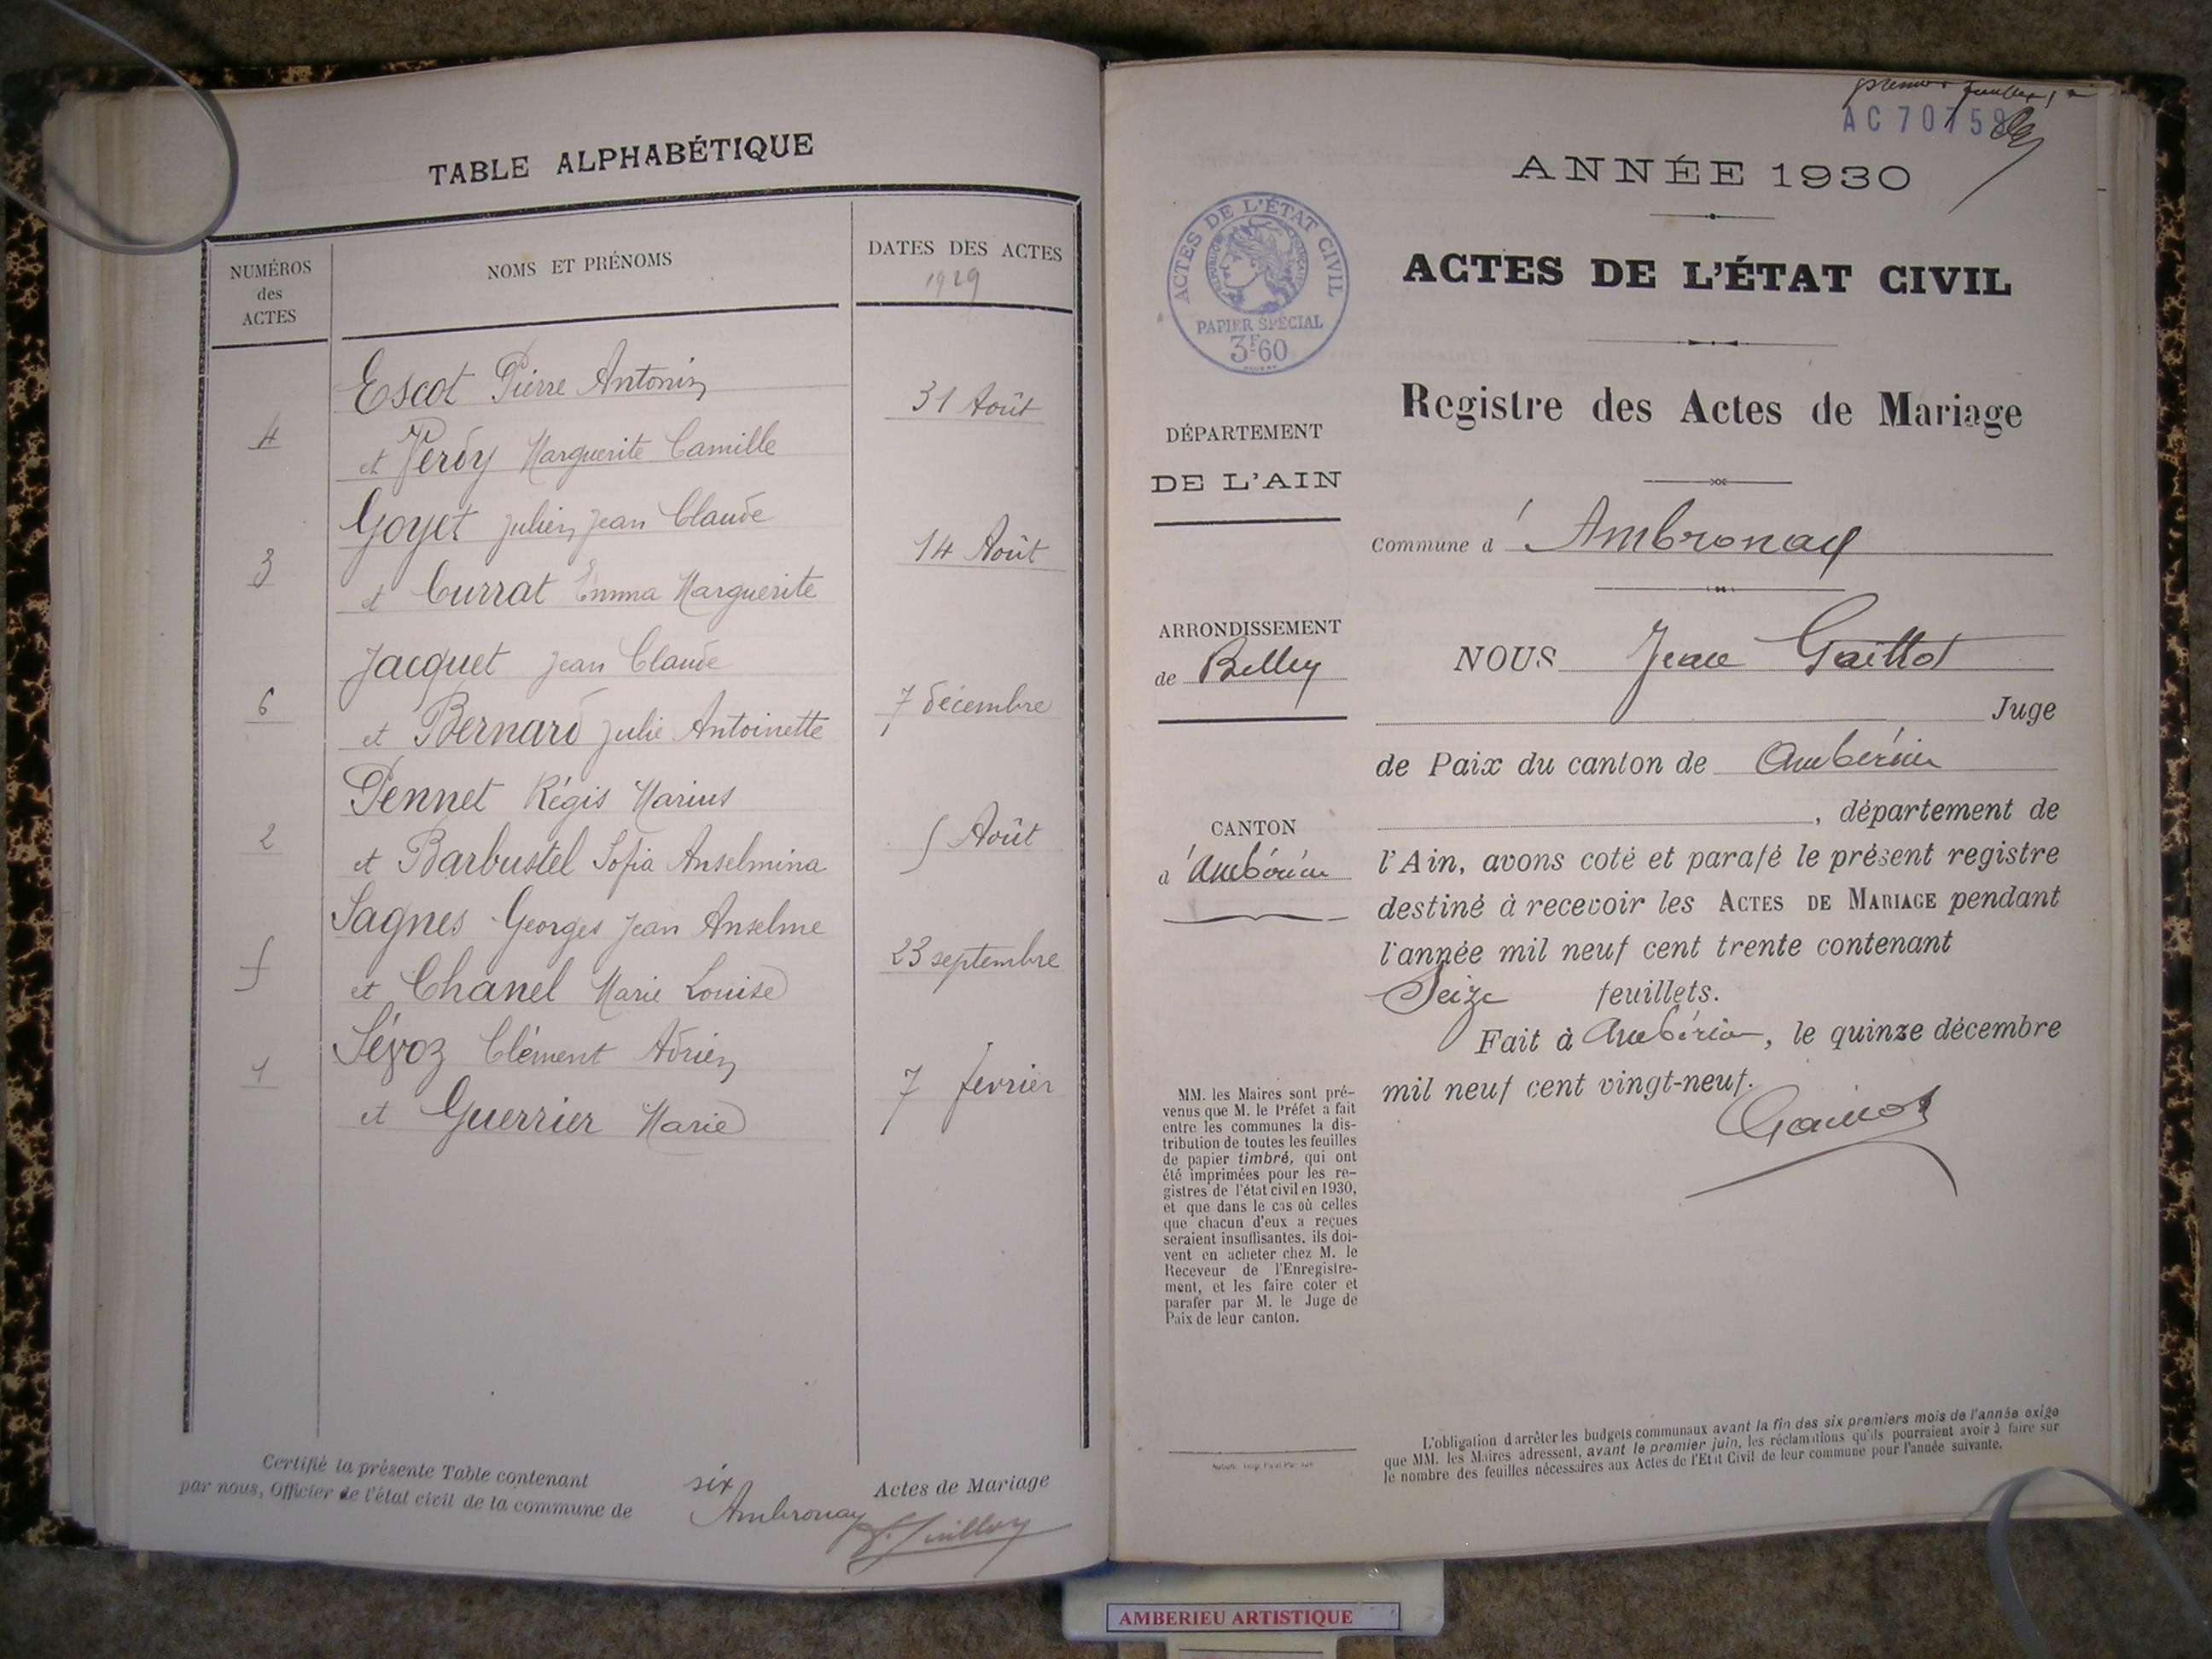 TABLE ALPHABÉTIQUE
NUMÉROS
des
ACTES
NOMS ET PRÉNOMS
DATES DES ACTES
1929
Escot Pierre Antonin
4
31 Août
et Perdy Marguerite Camille
Goyet Julien Jean Claude
3
14 Août
et Currat Emma Marguerite
Jacquet Jean Claude
6
7 décembre
et Bernard Julie Antoinette
Pennet Régis Marius
2
5 Août
et Barbustel Sofia Anselmina
Sagnes Georges Jean Anselme
5
23 septembre
et Chanel Marie Louise
Sévoz Clément Adrien
1
7 février
et Guerrier Marie
Certifié la présente Table contenant six Actes de Mariage
par nous, Officier de l'état civil de la commune de Ambronay
premier feuillet
AC 70759
ANNÉE 1930
ACTES DE L'ÉTAT CIVIL
RÉPUBLIQUE FRANÇAISE
PAPIER SPÉCIAL
3F.60
ACTES DE L'ÉTAT CIVIL
Registre des Actes de Mariage
DÉPARTEMENT
DE L'AIN
Commune d'Ambronay
ARRONDISSEMENT
de Belley
NOUS Jean Gaillot
Juge
de Paix du canton de Ambérieu
, département de
CANTON
d'Ambérieu
l'Ain, avons coté et parafé le présent registre
destiné à recevoir les ACTES DE MARIAGE pendant
l'année mil neuf cent trente contenant
Seize feuillets.
Fait à Ambérieu, le quinze décembre
mil neuf cent vingt-neuf.
MM. les Maires sont pré-
venus que M. le Préfet a fait
entre les communes la dis-
tribution de toutes les feuilles
de papier timbré, qui ont
été imprimées pour les re-
gistres de l'état civil en 1930,
et que dans le cas où celles
que chacun d'eux a reçues
seraient insuffisantes, ils doi-
vent en acheter chez M. le
Receveur de l'Enregistre-
ment, et les faire coter et
parafer par M. le Juge de
Paix de leur canton.
L'obligation d'arrêter les budgets communaux avant la fin des six premiers mois de l'année exige
que MM. les Maires adressent, avant le premier juin, les réclamations qu'ils pourraient avoir à faire sur
le nombre des feuilles nécessaires aux Actes de l'Etat Civil de leur commune pour l'année suivante.
AMBERIEU ARTISTIQUE